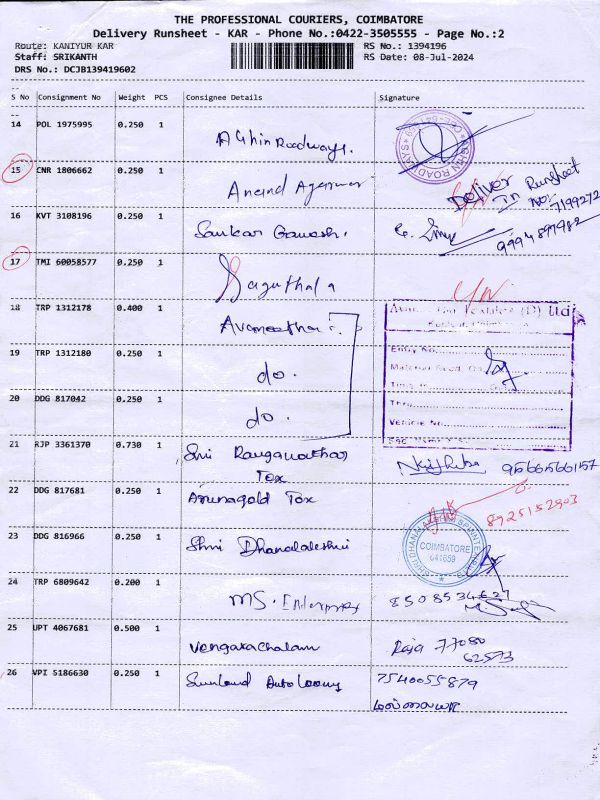 THE PROFESSIONAL COURIERS, COIMBATORE
Delivery Runsheet - KAR - Phone No.:0422-3505555 - Page No.:2
Route: KANIYUR KAR
RS No.: 1394196
Staff: SRIKANTH
RS Date: 08-Jul-2024
DRS No.: DCJB139419602
S No Consignment No Weight PCS Consignee Details Signature
14 POL 1975995 0.250 1 Roadways.
15 CNR 1806662 0.250 1 Anand
Deliver
In Runsheet
No:-
7199272
16 KVT 3108196 0.250 1 Sankar Ganesh.
9994897982
17 TMI 60058577 0.250 1
18 TRP 1312178 0.400 1
19 TRP 1312180 0.250 1 do.
20 DDG 817042 0.250 1 do.
Entry No.
Vehicle No.
21 RJP 3361370 0.730 1 Shri Ranganathar
Tex
9566566157
22 DDG 817681 0.250 1 Arunagold Tex
8925152903
23 DDG 816966 0.250 1 Shri Dhanalakshmi
COIMBATORE
641659
24 TRP 6809642 0.200 1 MS. Enterprises
8508534627
25 UPT 4067681 0.500 1 Vengatachalam
Raja 77080
62573
26 VPI 5186630 0.250 1 Sunland Autolooms
7540055879